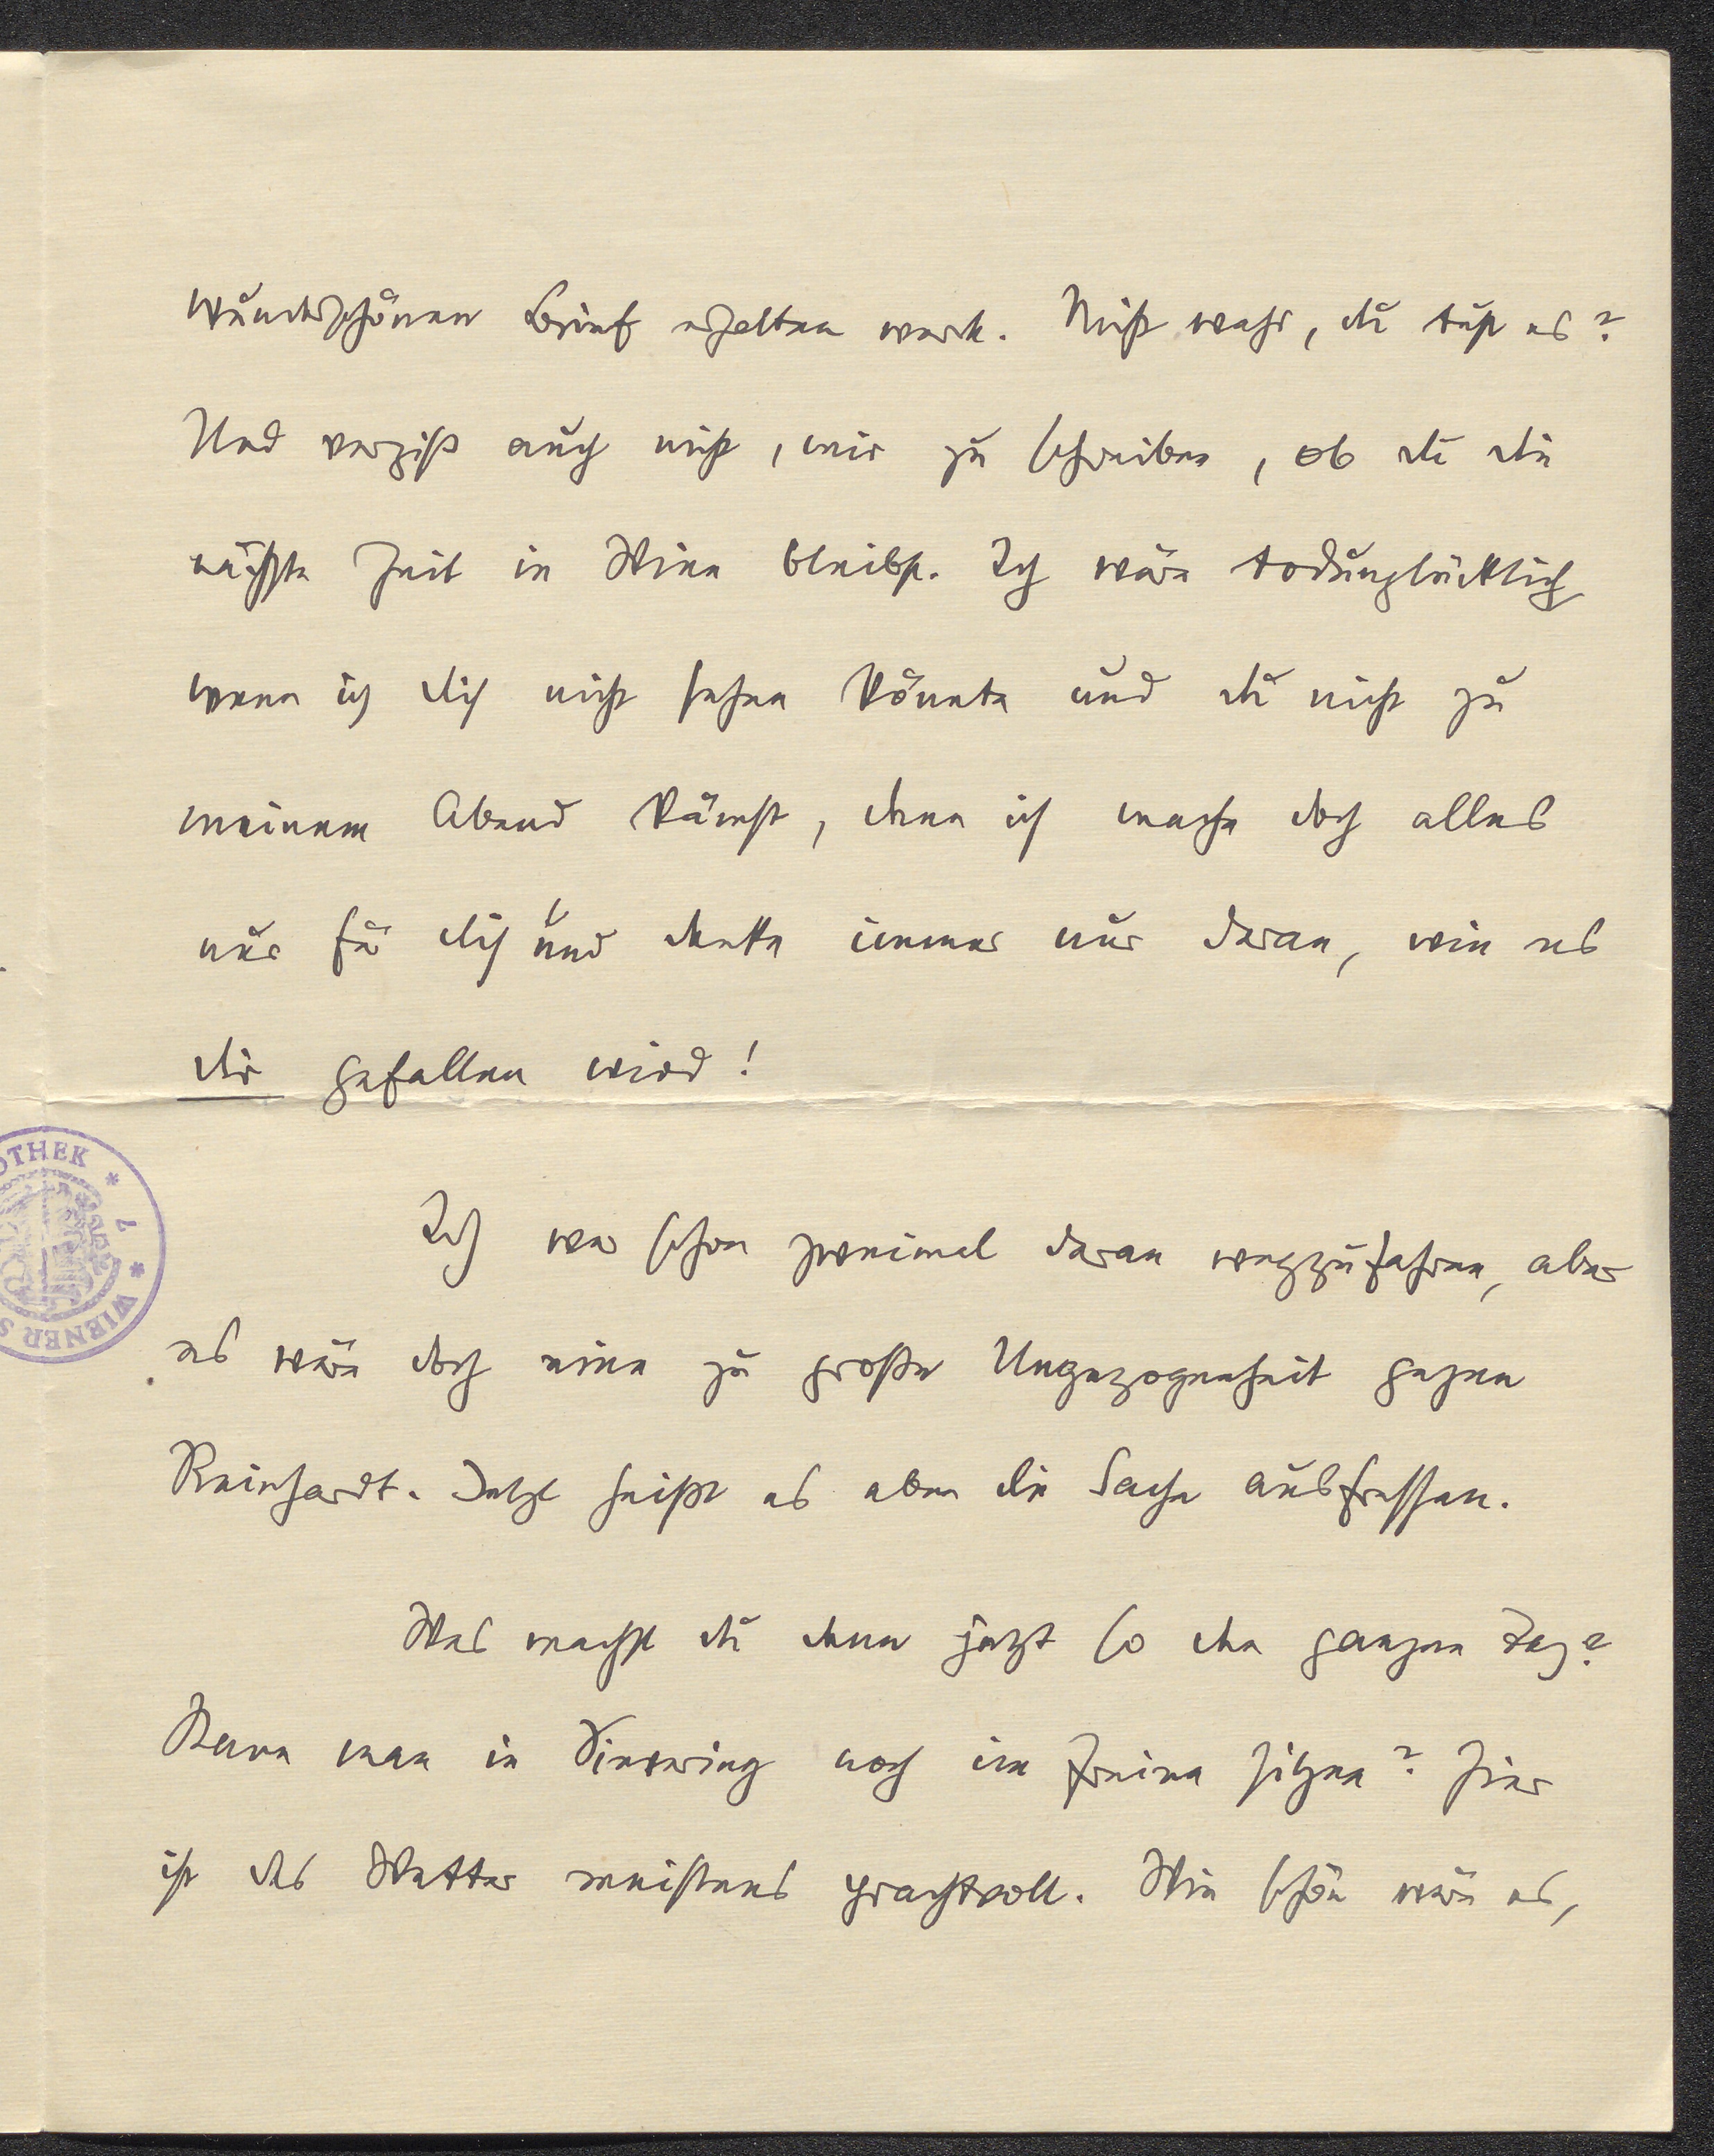 wunderschönen Brief erhalten werde. Nicht wahr, du tust es?
Und vergiß auch nicht, mir zu schreiben, ob du die
nächste Zeit in Wien bleibst. Ich wäre todunglücklich
wenn ich dich nicht sehen könnte und du nicht zu
meinem Abend kämst, denn ich mache doch alles
nur für dich und denke immer nur daran, wie es
dir gefallen wird!
Ich war schon zweimal daran wegzufahren, aber
es wäre doch eine zu große Ungezogenheit gegen
Reinhardt. Jetzt heißt es eben die Sache ausfressen.
Was machst du denn jetzt so den ganzen Tag?
Kann man in Sievering noch im Freien sitzen? Hier
ist das Wetter meistens prachtvoll. Wie schön wäre es,
OTHEK * 7 * WIENER S